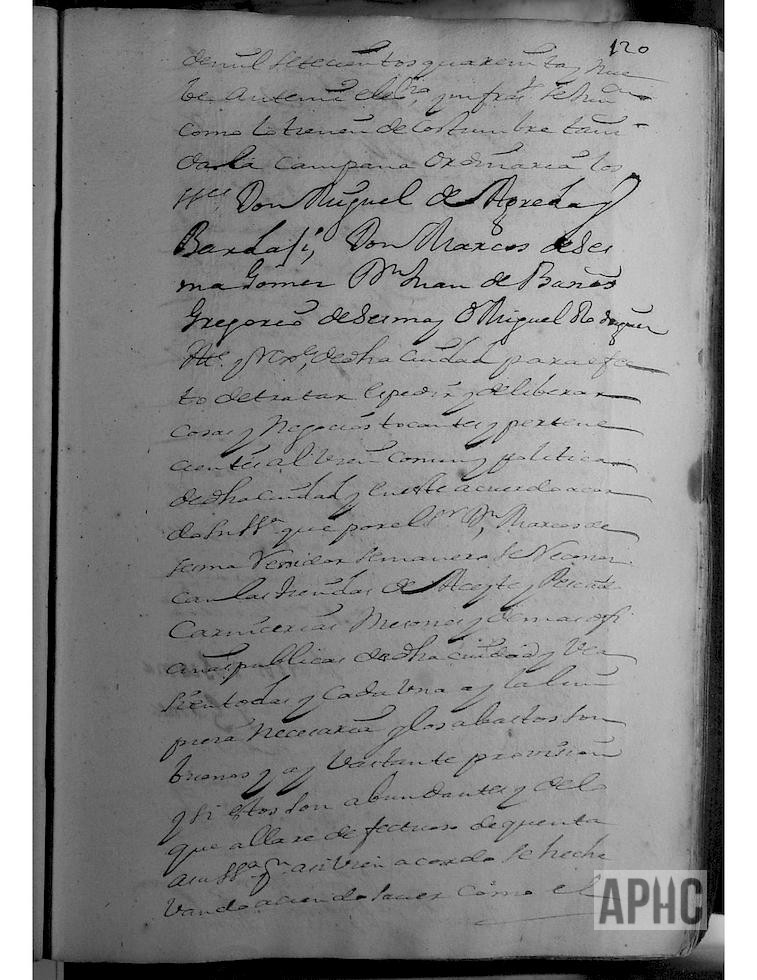 120
de mil setecientos quarenta y nue
be ante mi el ssno, ynfraº se Jun
como lo tienen de costumbre tañi
da la campana ordinaria los
SSes Don Miguel de Agreda y
Bardaji, Don Marcos de Ses
ma Gomez Dn Juan de Baños
Gregorio de Sesma y D Miguel Rodriguez
de dha ciudad para efec
to de tratar expedir y deliberar
cosas y negocios tocantes y pertene
cientes al vien comun y politica
de dha ciudad y en este acuerdo acor
do su ssª que por el Sr Dn Marcos de
sesma Rexidor semanero se reconoz
can las tiendas de Aceyte y Pescado
Carnicerias Mesones y demas ofi
cinas publicas de dha ciudad y vea
si en todas y cada una ay la lim
pieza necesaria y los abastos son
buenos y ay bastante provision
y si estos son abundantes y de lo
que allare defectuoso de quenta
a su ssª asi vien acordo se heche
vando aciendo saver como el
APHC